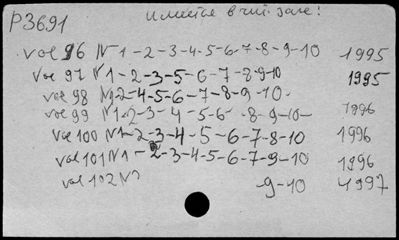 P3691
имеется в чит. зале!
vol 96 N 1-2-3-4-5-6-7-8-9-10 1995
Vol 97 N 1-2-3-5-6-7-8-9-10 1995
vol 98 N 1-2-4-5-6-7-8-9-10-
vol 99 N 1-2-3-4-5-6-8-9-10- 1996
Vol 100 N 1-2-3-4-5-6-7-8-10 1996
vol 101 N 1-2-3-4-5-6-7-9-10 1996
vol 102 N 9-10 1997